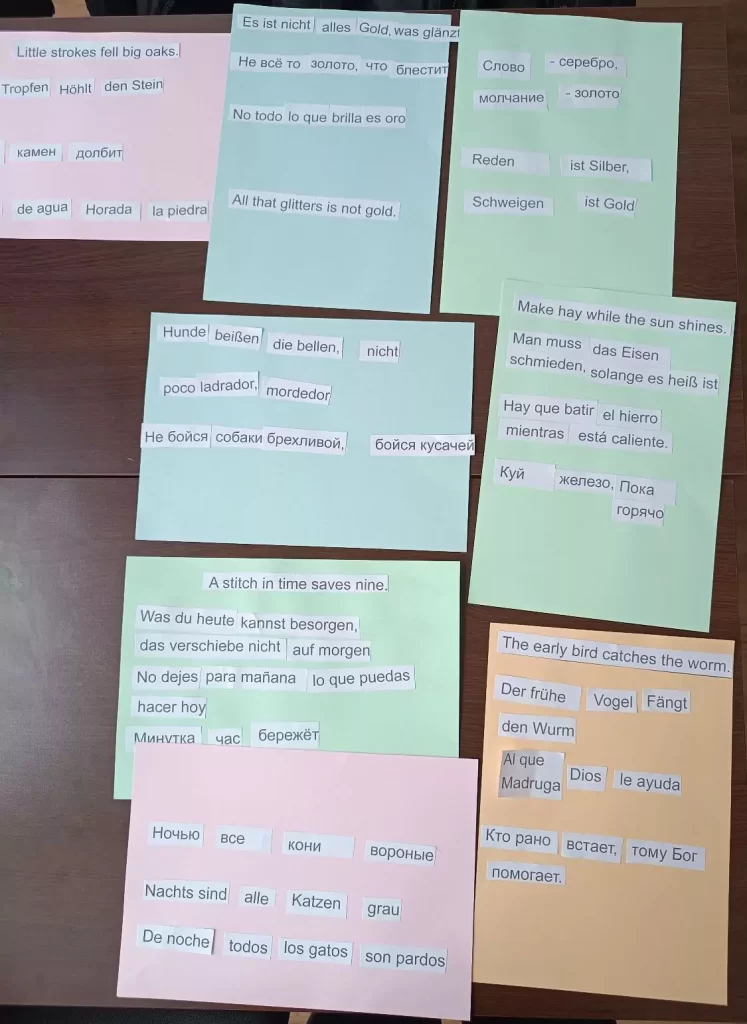 Little strokes fell big oaks.
Tropfen Höhlt den Stein
камен долбит
de agua Horada la piedra
Es ist nicht alles Gold, was glänzt
Не всё то золото, что блестит
No todo lo que brilla es oro
All that glitters is not gold.
Слово - серебро,
молчание - золото
Reden ist Silber,
Schweigen ist Gold
Hunde beißen die bellen, nicht
poco ladrador, mordedor
Не бойся собаки брехливой, бойся кусачей
Make hay while the sun shines.
Man muss das Eisen
schmieden, solange es heiß ist
Hay que batir el hierro
mientras está caliente.
Куй железо, Пока
горячо
A stitch in time saves nine.
Was du heute kannst besorgen,
das verschiebe nicht auf morgen
No dejes para mañana lo que puedas
hacer hoy
Минутка час бережёт
The early bird catches the worm.
Der frühe Vogel Fängt
den Wurm
Al que
Madruga Dios le ayuda
Кто рано встает, тому Бог
помогает.
Ночью все кони вороные
Nachts sind alle Katzen grau
De noche todos los gatos son pardos